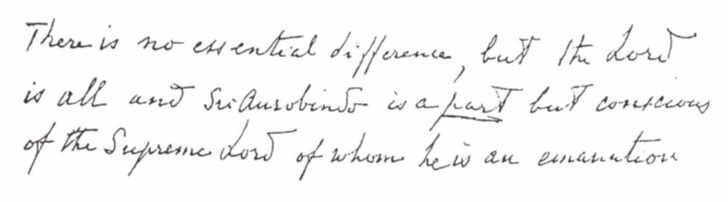 There is no essential difference, but the Lord
is all and Sri Aurobindo is a part but conscious
of the Supreme Lord of whom he is an emanation